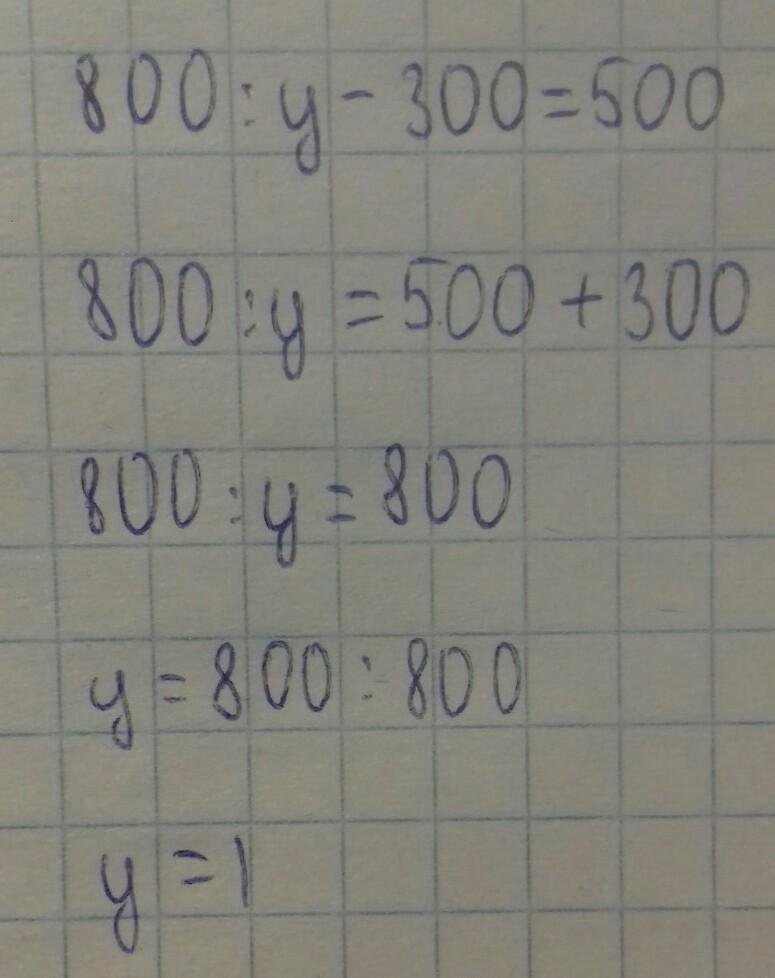 800 : y - 300 = 500
800 : y = 500 + 300
800 : y = 800
y = 800 : 800
y = 1